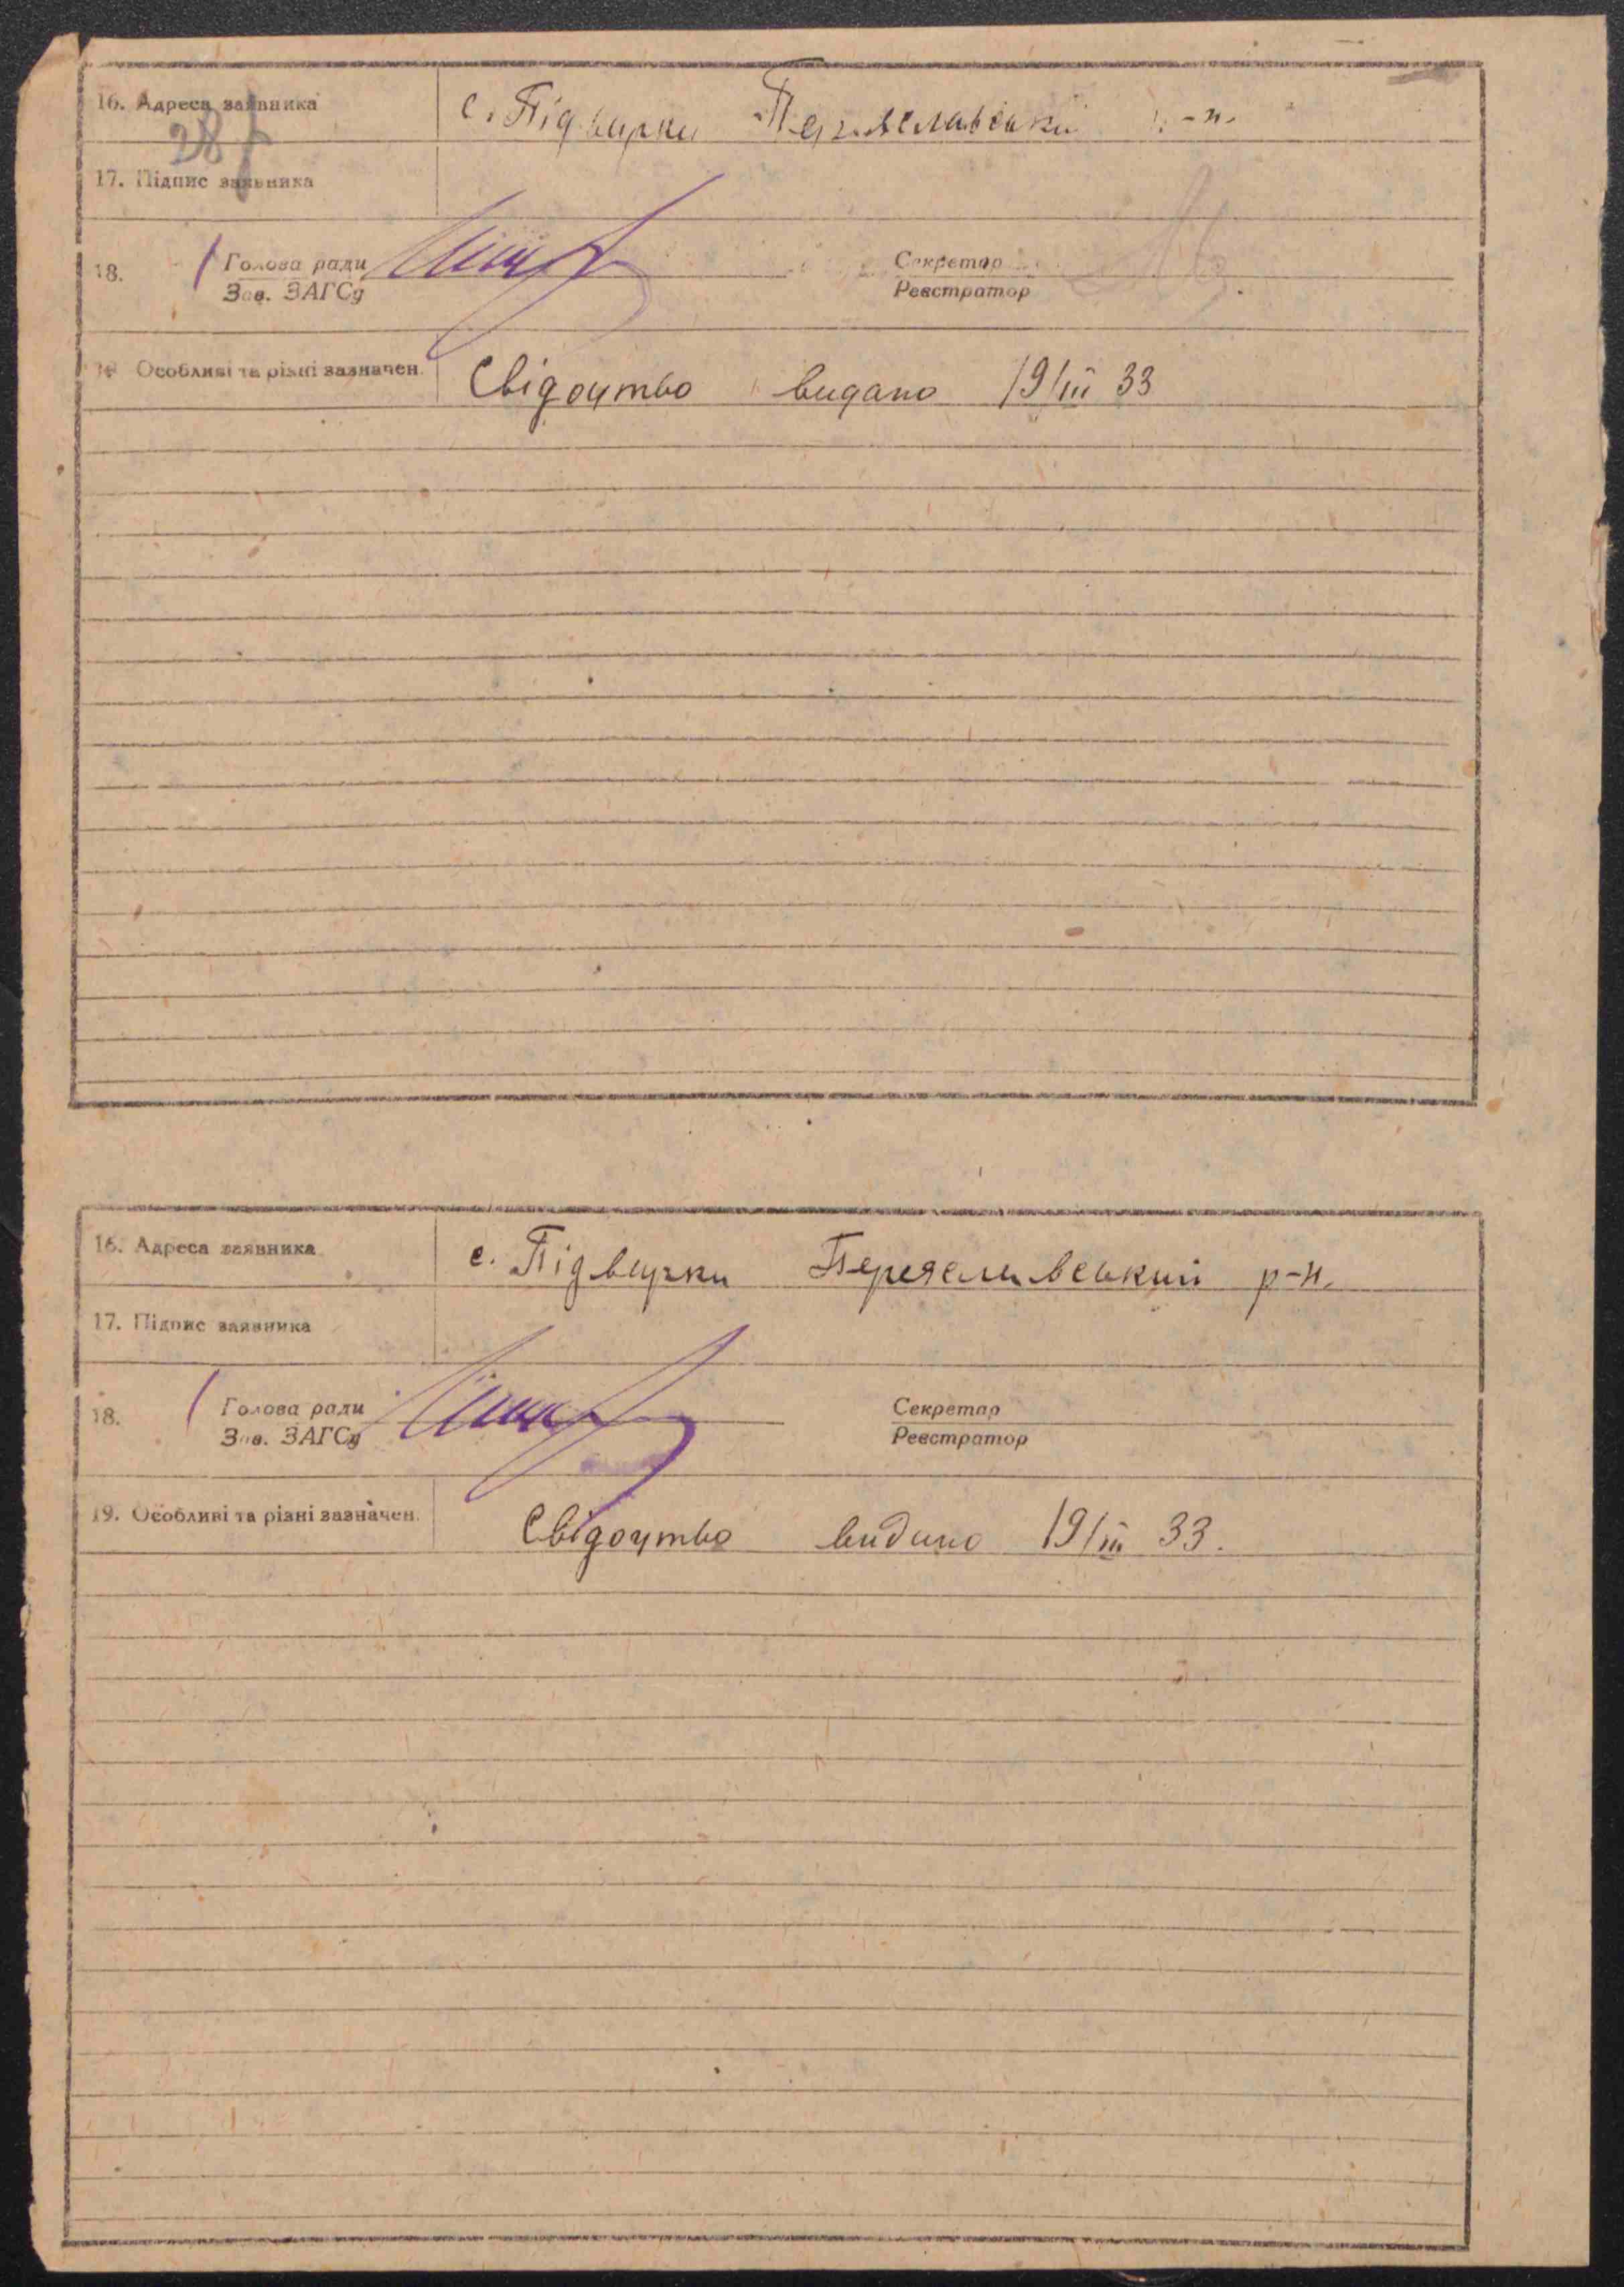 16. Адреса заявника с. Підвирки Переяславський р-н.
28
17. Підпис заявника
18. Голова ради Секретар
Зав. ЗАГСу Реєстратор
19 Особливі та різні зазначен. Свідоцтво видано 19/III 33
16. Адреса заявника с. Підвирки Переяславський р-н.
17. Підпис заявника
18. Голова ради Секретар
Зав. ЗАГСу Реєстратор
19. Особливі та різні зазначен. Свідоцтво видано 19/III 33.